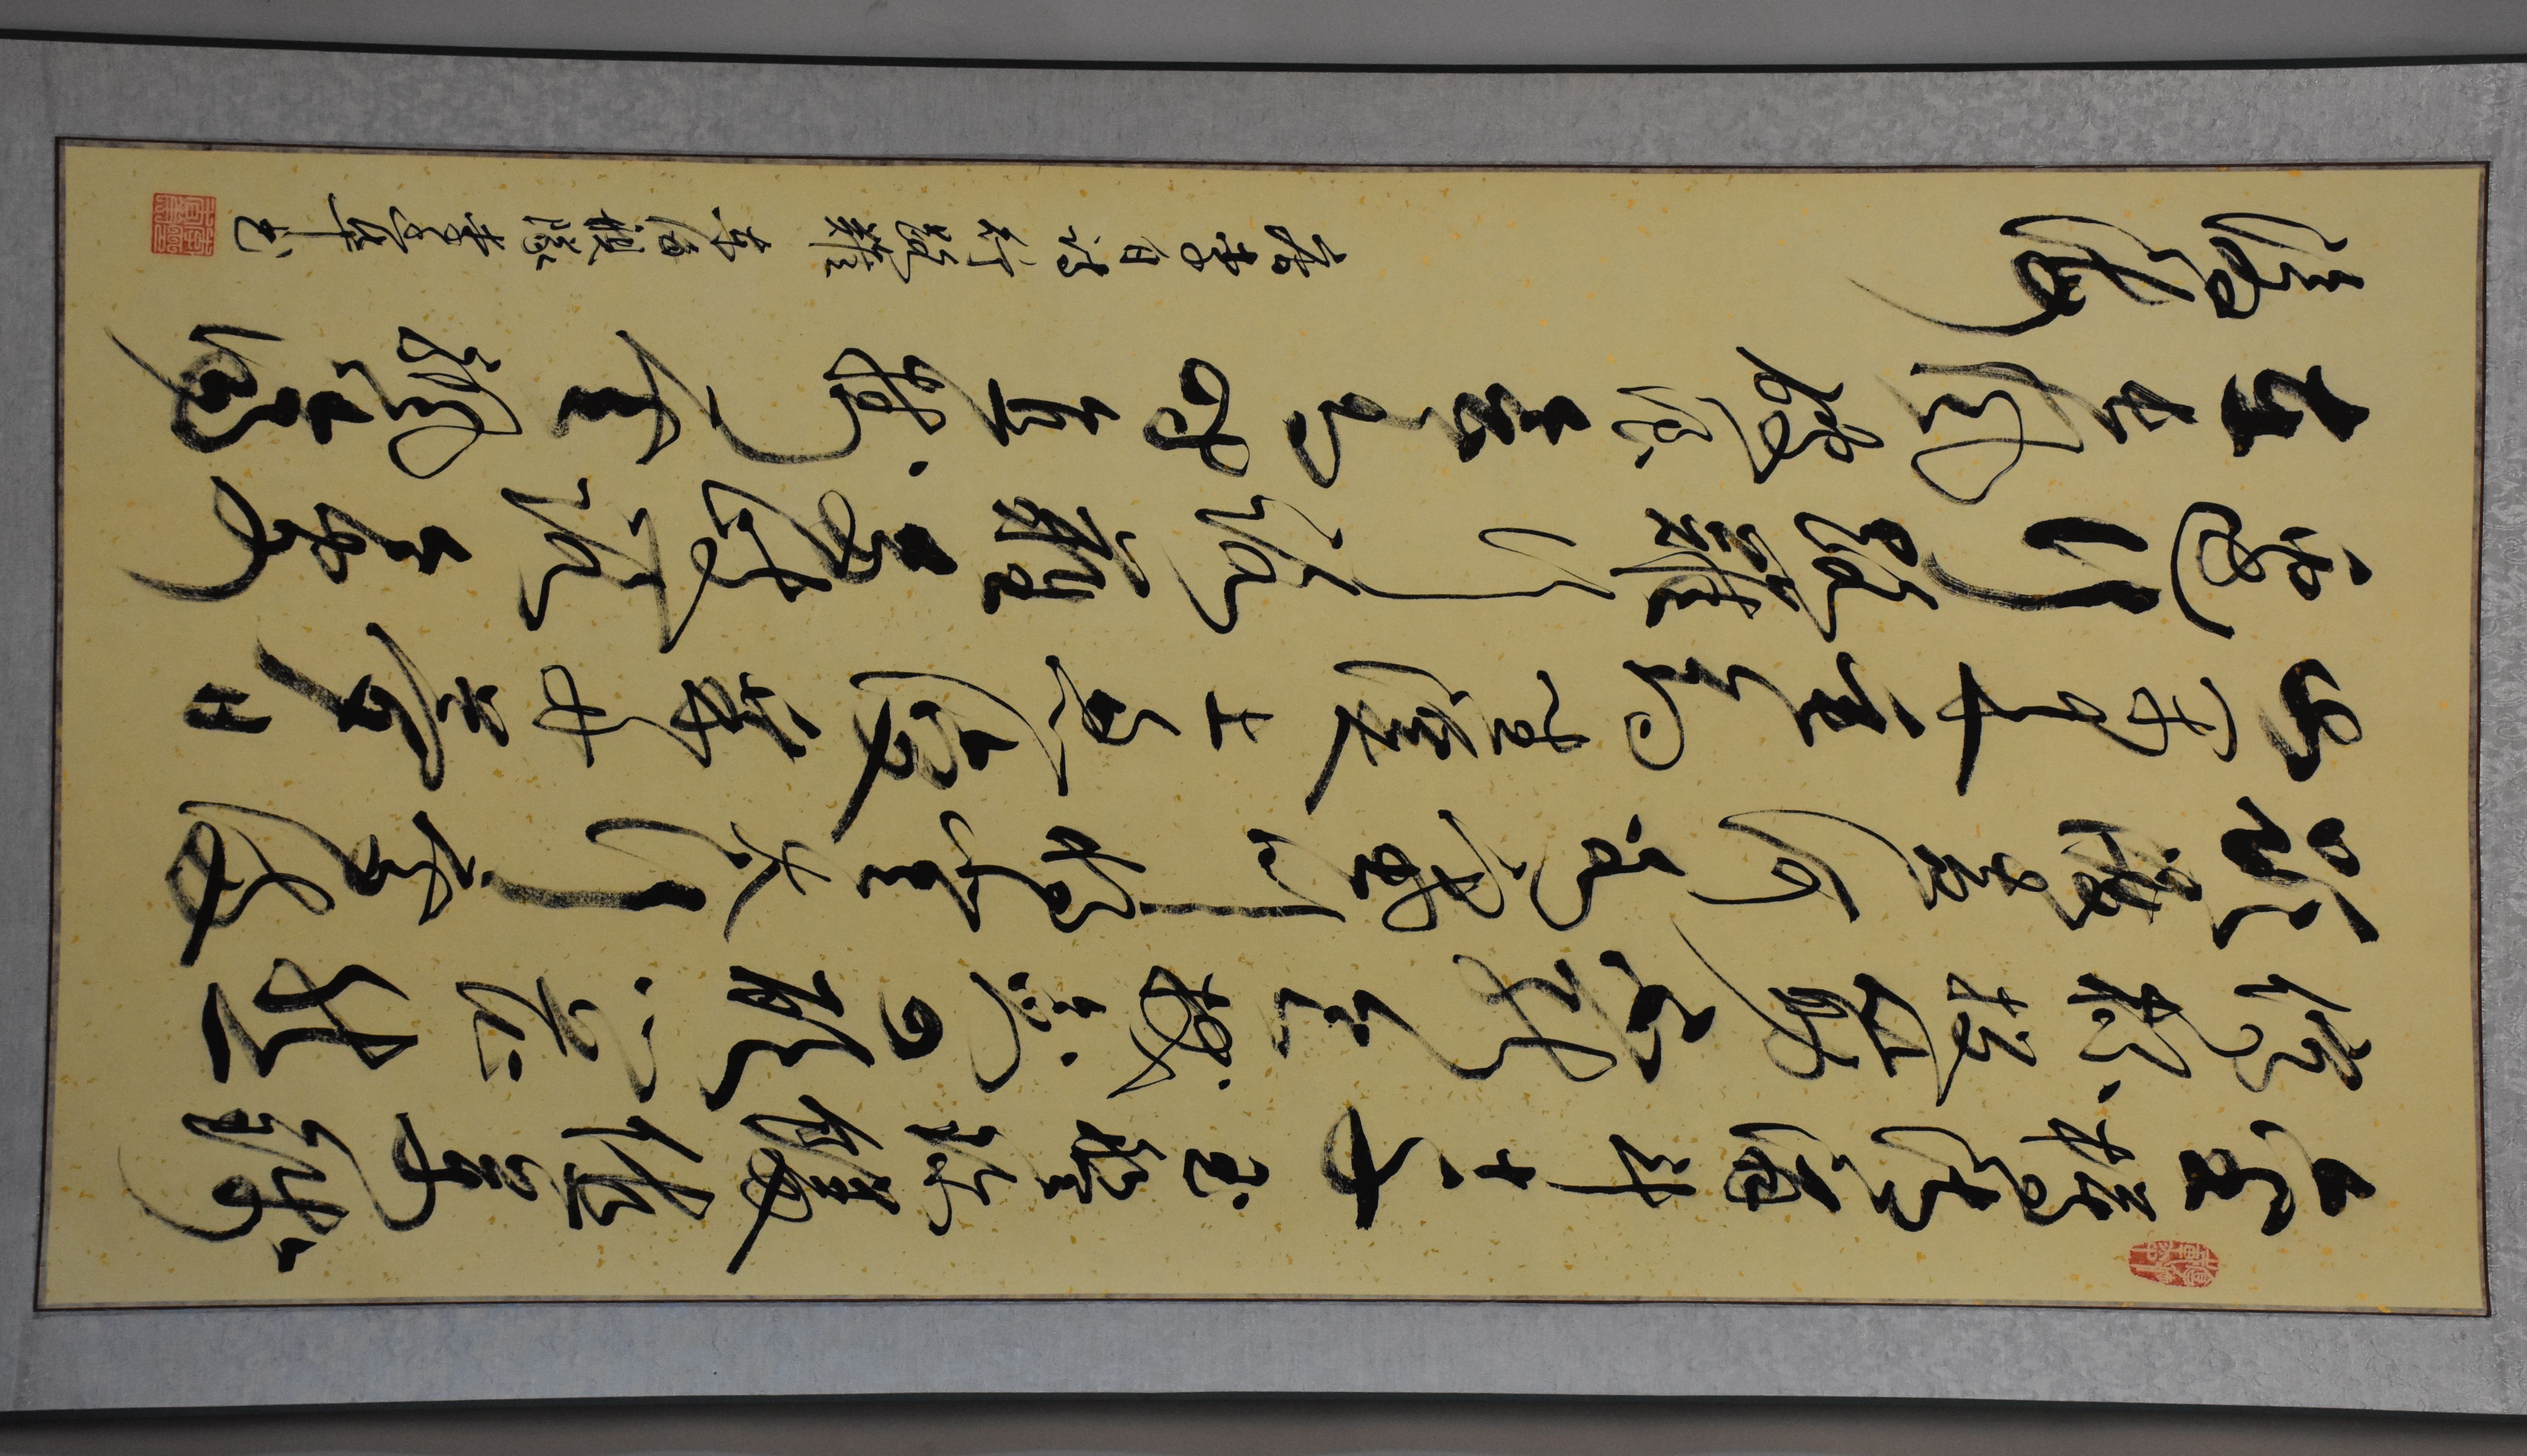 金樽清酒斗十千玉盤珍羞直萬錢
停杯投箸不能食拔劍四顧心茫然
欲渡黃河冰塞川將登太行雪滿
山閑來垂釣碧溪上忽復乘舟夢日
邊行路難行路難多歧路今安
在長風破浪會有時直掛雲帆濟
滄海
唐李白詩行路難